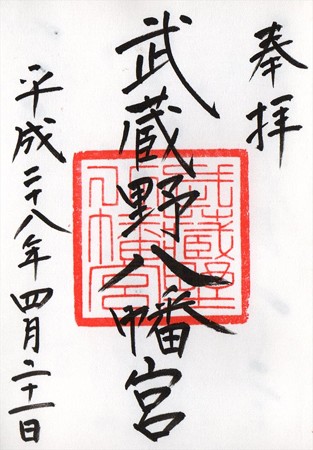 奉拝
武蔵野八幡宮
武蔵野八幡宮
平成二十八年四月二十一日